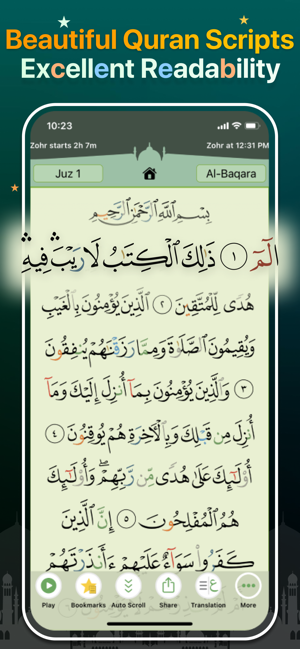 Beautiful Quran Scripts
Excellent Readability
10:23
Zohr starts 2h 7m
Zohr at 12:31 PM
Juz 1
Al-Baqara
بِسْمِ ٱللَّهِ ٱلرَّحْمَٰنِ ٱلرَّحِيمِ
الٓمٓ ١ ذَٰلِكَ ٱلْكِتَٰبُ لَا رَيْبَ ۛ فِيهِ ۛ
هُدًى لِّلْمُتَّقِينَ ٢ ٱلَّذِينَ يُؤْمِنُونَ بِٱلْغَيْبِ
وَيُقِيمُونَ ٱلصَّلَوٰةَ وَمِمَّا رَزَقْنَٰهُمْ يُنفِقُونَ
٣ وَٱلَّذِينَ يُؤْمِنُونَ بِمَآ أُنزِلَ إِلَيْكَ وَمَآ
أُنزِلَ مِن قَبْلِكَ وَبِٱلْءَاخِرَةِ هُمْ يُوقِنُونَ ٤
أُو۟لَٰٓئِكَ عَلَىٰ هُدًى مِّن رَّبِّهِمْ ۖ وَأُو۟لَٰٓئِكَ
هُمُ ٱلْمُفْلِحُونَ ٥ إِنَّ ٱلَّذِينَ
كَفَرُوا۟ سَوَآءٌ عَلَيْهِمْ ءَأَنذَرْتَهُمْ
Play
Bookmarks
Auto Scroll
Share
Translation
More